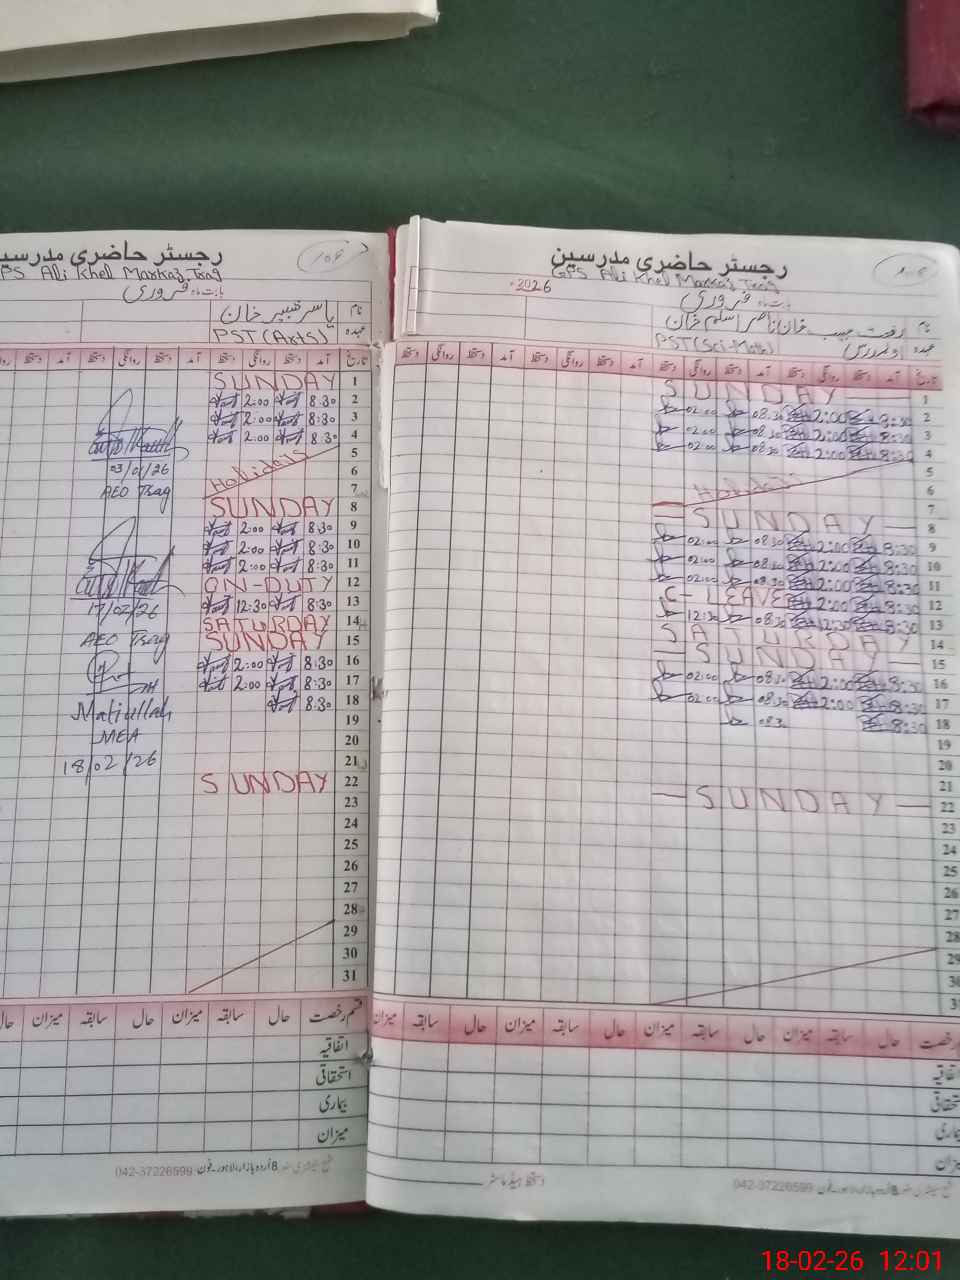 رجسٹر حاضری مدرسین
GPS Ali Khel Markaz Tsag
2026
بابت ماہ فروری
نام
عہدہ
PST(Sci-Math)
تاریخ آمد دستخط روانگی دستخط آمد دستخط روانگی دستخط آمد دستخط روانگی دستخط
1 SUNDAY
2 8:30 2:00 08:30 02:00
3 8:30 2:00 08:30 02:00
4 8:30 2:00 08:30 02:00
5
6 Holidais
7
8 SUNDAY
9 8:30 2:00 08:30 02:00
10 8:30 2:00 08:30 02:00
11 8:30 2:00 08:30 02:00
12 8:30 2:00 C-LEAVE
13 8:30 12:30 08:30 12:30
14 SATURDAY
15 SUNDAY
16 8:30 2:00 08:30 02:00
17 8:30 2:00 08:30 02:00
18 8:30 08:30
19
20
21
22 SUNDAY
23
24
25
26
27
28
29
30
31
رخصت حال سابقہ میزان حال سابقہ میزان حال سابقہ میزان حال سابقہ میزان
اتفاقیہ
استحقاقی
بیماری
میزان
دستخط ہیڈ ماسٹر
8 اردو بازار، لاہور۔ فون 042-37226599
رجسٹر حاضری مدرسین
PS Ali Khel Markaz Tsag
106
بابت ماہ فروری
نام یاسر شبیر خان
عہدہ PST(Arts)
تاریخ آمد دستخط روانگی دستخط آمد دستخط روانگی دستخط
1 SUNDAY
2 8:30 2:00
3 8:30 2:00
4 8:30 2:00
5
6 Holidais
7
8 SUNDAY
9 8:30 2:00
10 8:30 2:00
11 8:30 2:00
12 ON-DUTY
13 8:30 12:30
14 SATURDAY
15 SUNDAY
16 8:30 2:00
17 8:30 2:00
18 8:30
19
20
21
22 SUNDAY
23
24
25
26
27
28
29
30
31
AEO Tsag
17/02/26
AEO Tsag
Matiullah
MEA
18/02/26
قسم رخصت حال سابقہ میزان حال سابقہ میزان حال
اتفاقیہ
استحقاقی
بیماری
میزان
8 اردو بازار، لاہور۔ فون 042-37226599
18-02-26 12:01